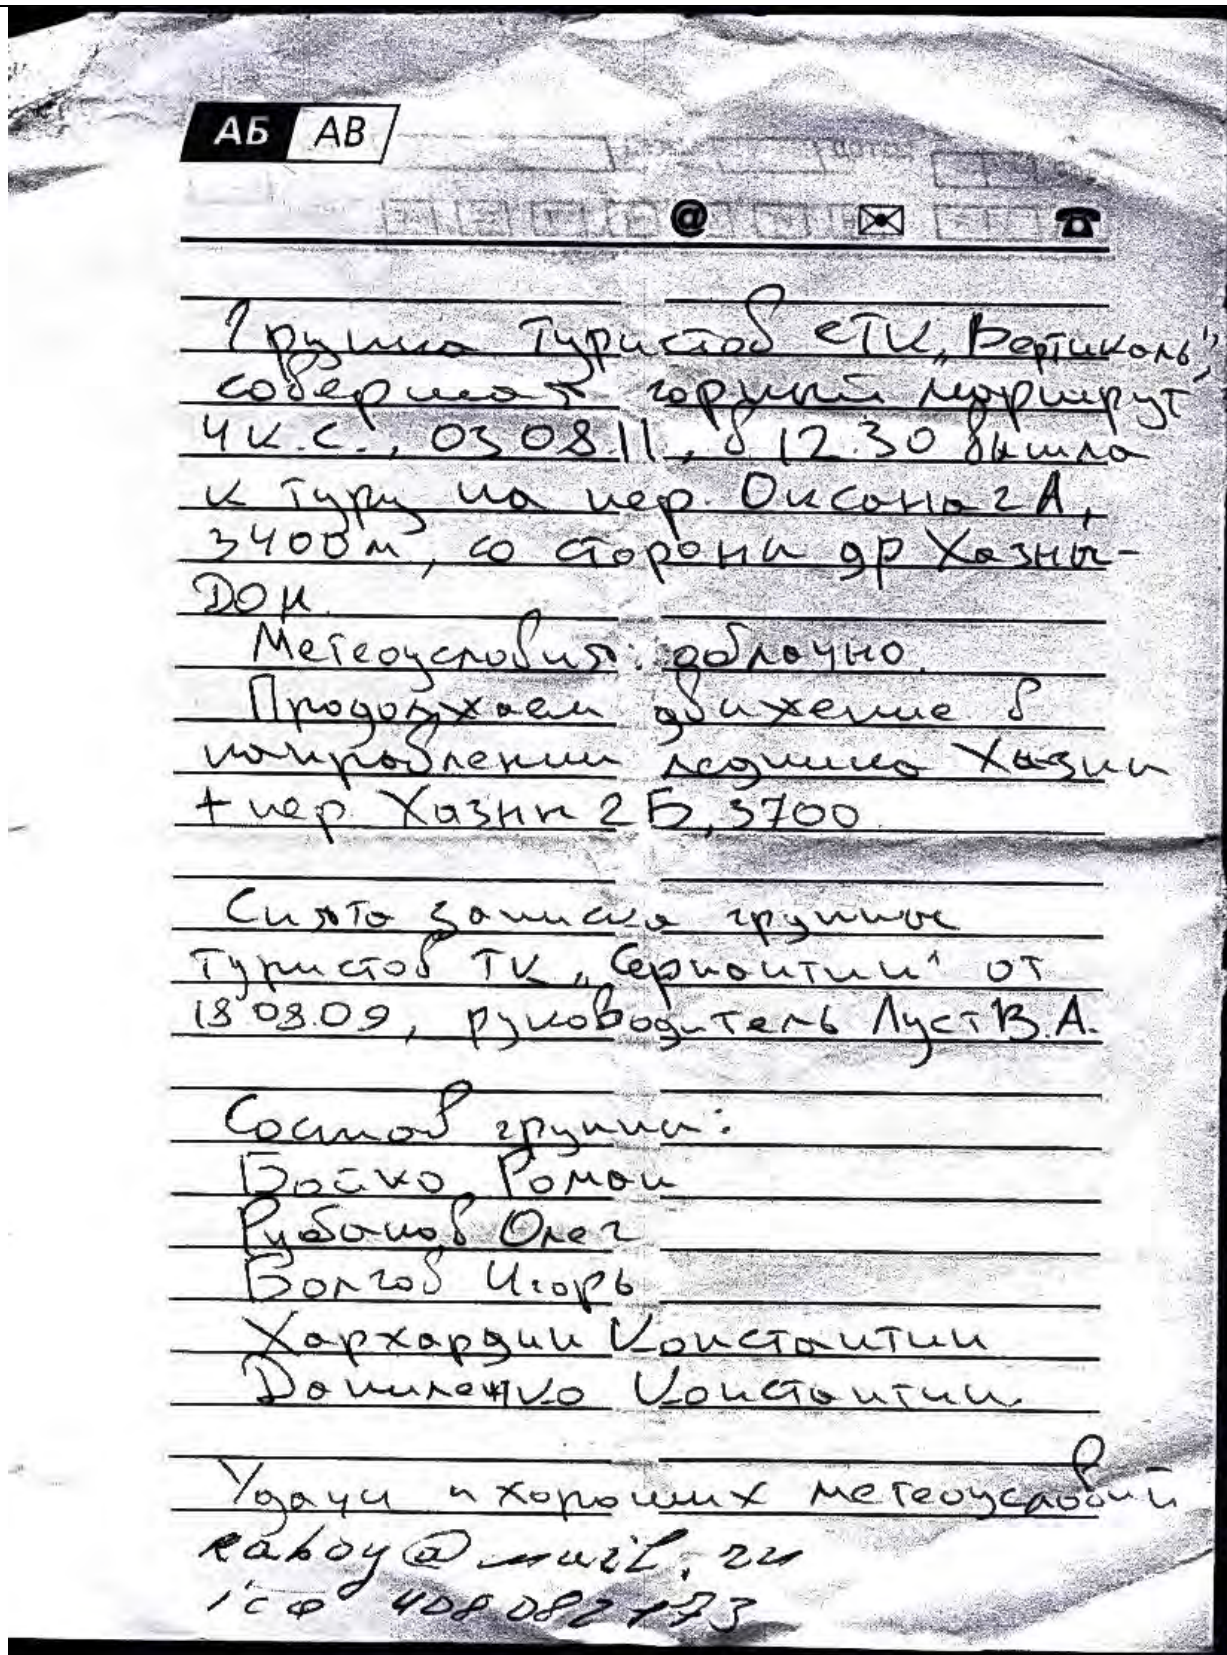 АБ АВ
Группа туристов СТК „Вертикаль",
совершает горный маршрут
4 к.с., 03.08.11, в 12.30 вышла
к туру на пер. Оксана 2А,
3400м, со стороны др Хазны-
Дон.
Метеоусловия: облачно.
Продолжаем движение в
направлении ледника Хазны
+ пер. Хазны 2Б, 3700.
Снята записка группы
туристов ТК „Серпантин" от
руководитель Луст В.А.
Состав группы:
Бойко Роман
Рубанов Олег
Болгов Игорь
Хархардин Константин
Даниленко Константин.
Удачи и хороших метеоусловий
raboy@mail.ru
408082173